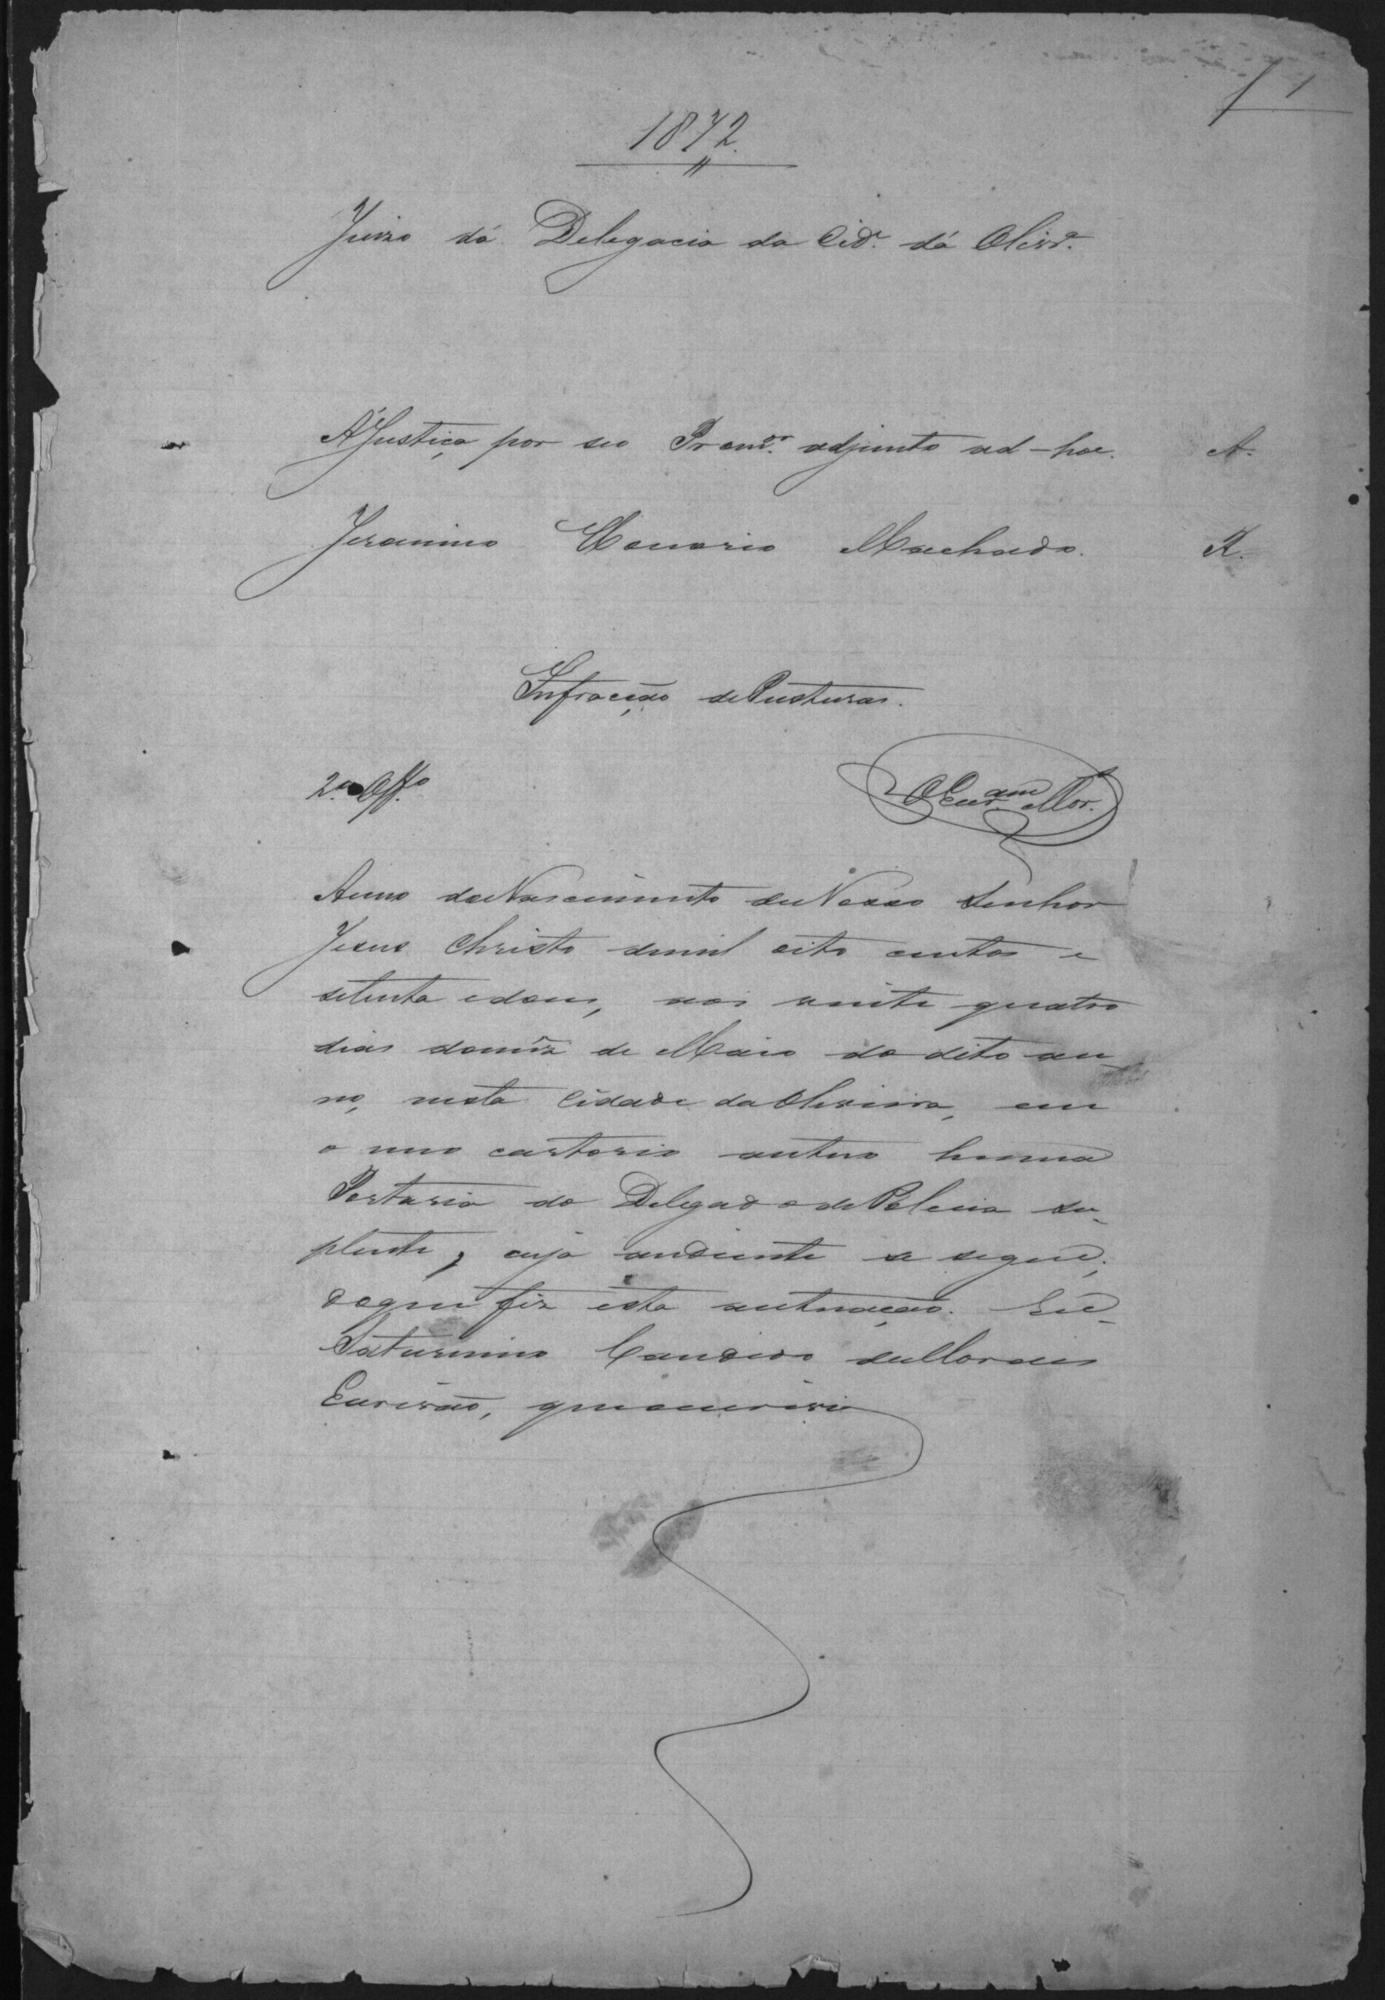 1
1872.
Juizo da Delegacia da Cid.e da Olivr.a
A Justiça por seo Prom.or adjunto ad-hoc. A.
Jeronimo Honorio Machado. R.
Infracção de Pusturas.
2.o Off.o
O Escr.am Mor.
Anno do Nascimento de Nosso Senhor
Jesus Christo de mil oito centos e
setenta e dous, aos vinte quatro
dias do mez de Maio do dito an-
no, nesta Cidade da Oliveira, em
o meo cartorio autuo huma
Portaria do Delegado de Polecia su-
plente, cujo andiente se segue;
do que fiz esta autuação. Eu
Saturnino Candido de Moraes
Escrivão, que o escrivi